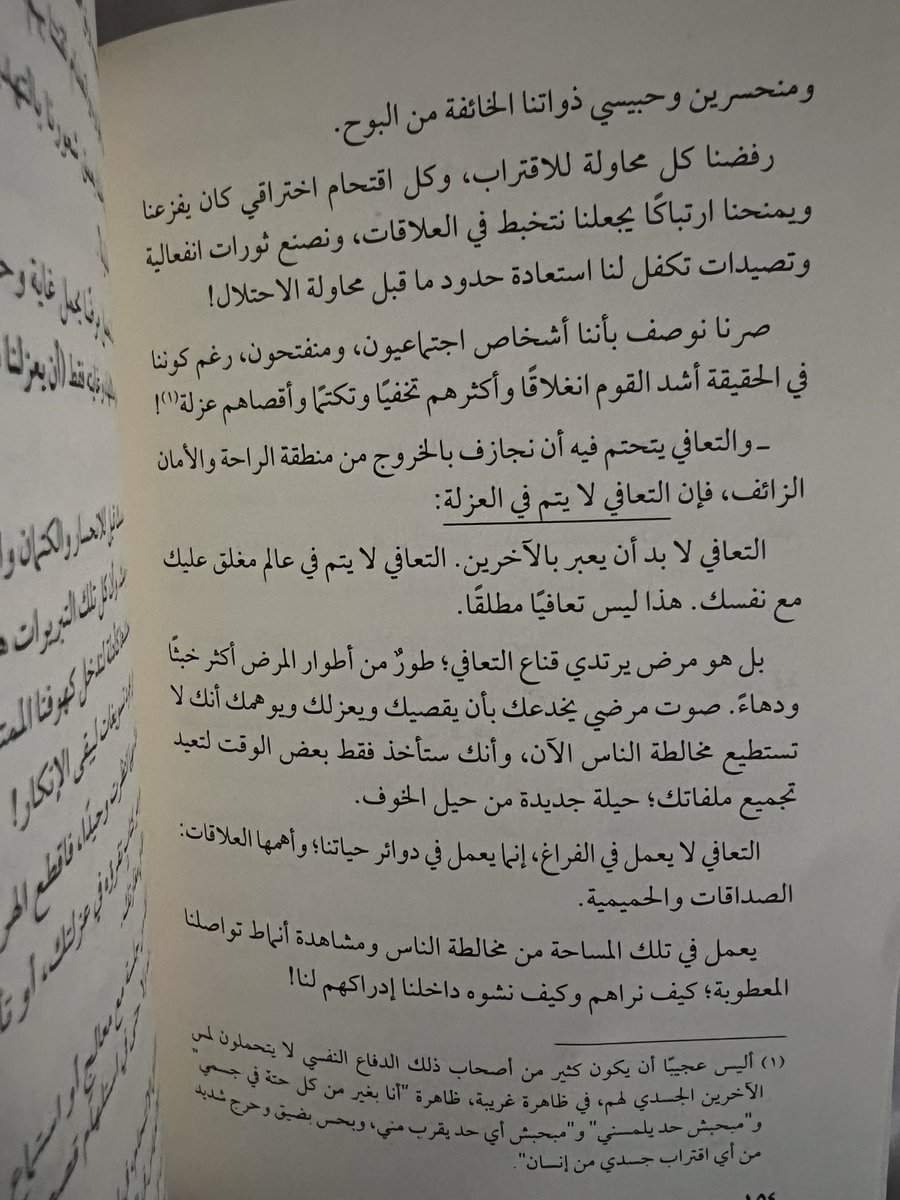 ومنحسرين وحبيسي ذواتنا الخائفة من البوح.
رفضنا كل محاولة للاقتراب، وكل اقتحام اختراقي كان يفزعنا
ويمنحنا ارتباكًا يجعلنا نتخبط في العلاقات، ونصنع ثورات انفعالية
وتصيدات تكفل لنا استعادة حدود ما قبل محاولة الاحتلال!
صرنا نوصف بأننا أشخاص اجتماعيون، ومنفتحون، رغم كوننا
في الحقيقة أشد القوم انغلاقًا وأكثرهم تخفيًا وتكتمًا وأقصاهم عزلة(١)!
ـ والتعافي يتحتم فيه أن نجازف بالخروج من منطقة الراحة والأمان
الزائف، فإن التعافي لا يتم في العزلة:
التعافي لا بد أن يعبر بالآخرين. التعافي لا يتم في عالم مغلق عليك
مع نفسك. هذا ليس تعافيًا مطلقًا.
بل هو مرض يرتدي قناع التعافي؛ طورٌ من أطوار المرض أكثر خبثًا
ودهاءً. صوت مرضي يخدعك بأن يقصيك ويعزلك ويوهمك أنك لا
تستطيع مخالطة الناس الآن، وأنك ستأخذ فقط بعض الوقت لتعيد
تجميع ملفاتك؛ حيلة جديدة من حيل الخوف.
التعافي لا يعمل في الفراغ، إنما يعمل في دوائر حياتنا؛ وأهمها العلاقات:
الصداقات والحميمية.
يعمل في تلك المساحة من مخالطة الناس ومشاهدة أنماط تواصلنا
المعطوبة؛ كيف نراهم وكيف نشوه داخلنا إدراكهم لنا!
(١) أليس عجيبًا أن يكون كثير من أصحاب ذلك الدفاع النفسي لا يتحملون لمس
الآخرين الجسدي لهم، في ظاهرة غريبة، ظاهرة "أنا بغير من كل حتة في جسمي"
و"مبحبش حد يلمسني" و"مبحبش أي حد يقرب مني، وبحس بضيق وحرج شديد
من أي اقتراب جسدي من إنسان".
١٥٤